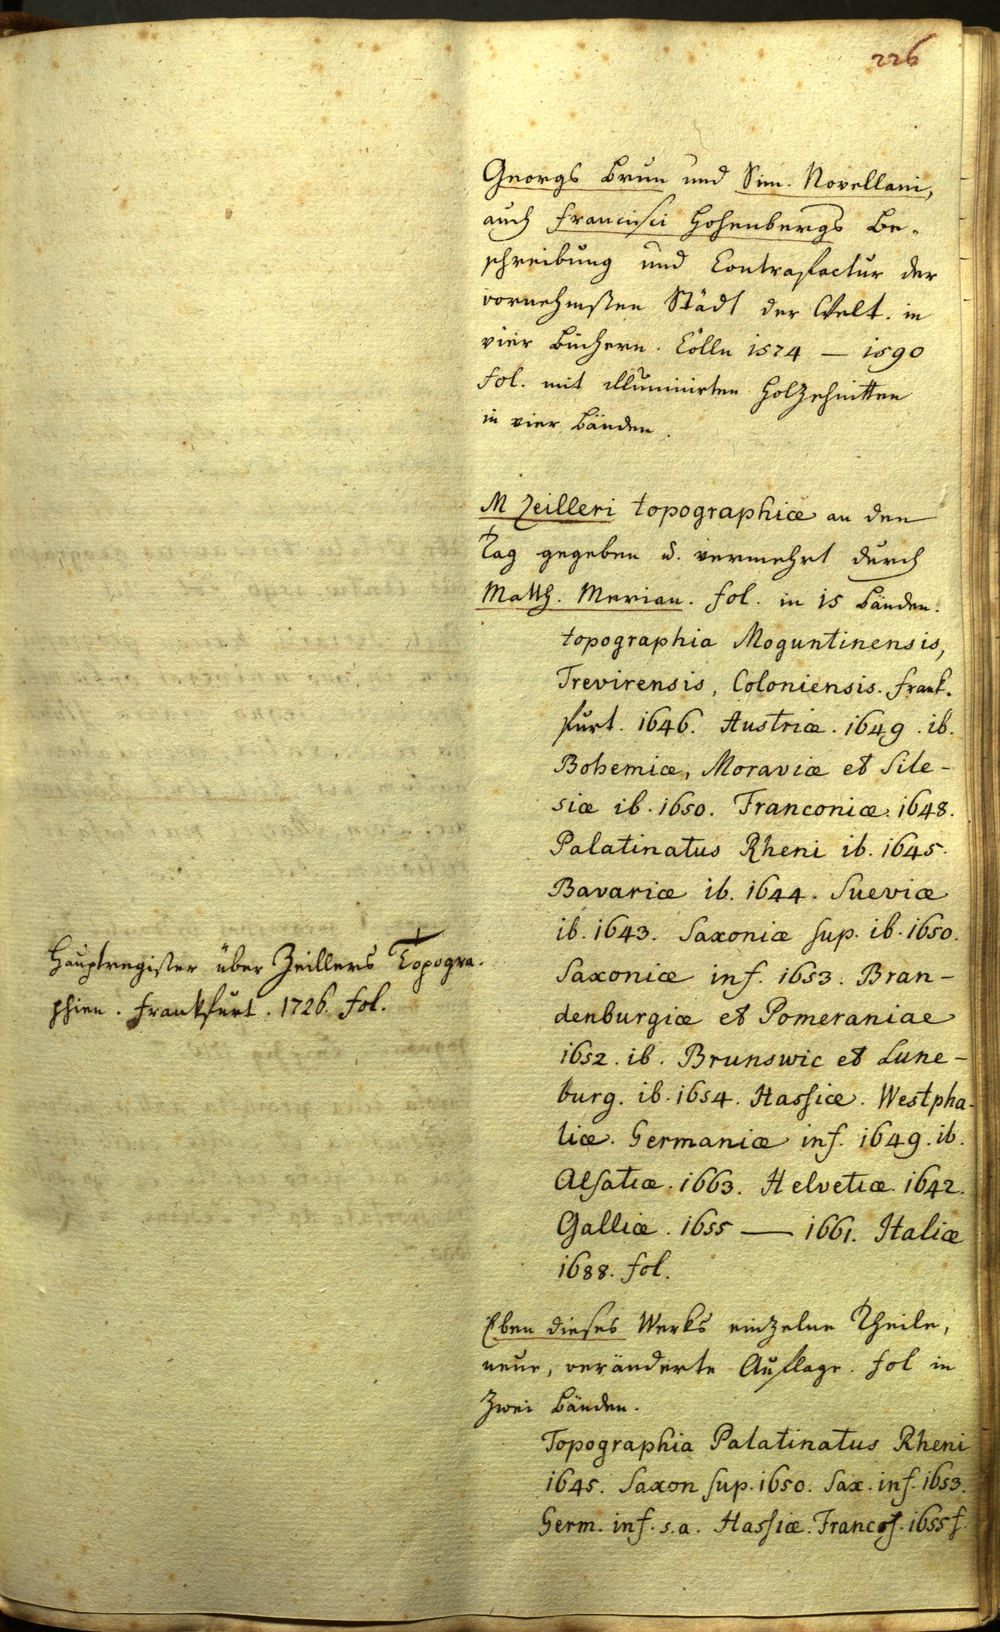 226
Georgs Brun und Sim. Novellani,
auch Francisci Hohenbergs Be-
schreibung und Contrafactur der
vornehmsten Städt der Welt. in
vier Büchern. Cölln 1574 — 1590
fol. mit illuminirten Holzschnitten
in vier Bänden.
M Zeilleri topographiæ an den
Tag gegeben u. vermehrt durch
Matth. Merian. fol. in 15 Bänden.
topographia Moguntinensis,
Trevirensis, Coloniensis. Frank-
furt. 1646. Austriæ. 1649. ib.
Bohemiæ, Moraviæ et Sile-
siæ ib. 1650. Franconiæ. 1648.
Palatinatus Rheni ib. 1645.
Bavariæ ib. 1644. Sueviæ
ib. 1643. Saxoniæ sup. ib. 1650.
Saxoniæ inf. 1653. Bran-
denburgiæ et Pomeraniae
1652. ib. Brunswic et Lune-
burg. ib. 1654. Hassiæ. Westpha-
liæ. Germaniæ inf. 1649. ib.
Alsatiæ. 1663. Helvetiæ. 1642.
Galliæ. 1655 — 1661. Italiæ
1688. fol.
Hauptregister über Zeillers Topogra-
phien. Frankfurt. 1726. fol.
Eben dieses Werks einzelne Theile,
neue, veränderte Auflage. fol in
zwei Bänden.
Topographia Palatinatus Rheni
1645. Saxon sup. 1650. Sax. inf. 1653.
Germ. inf. s. a. Hassiæ. Francof. 1655 f.